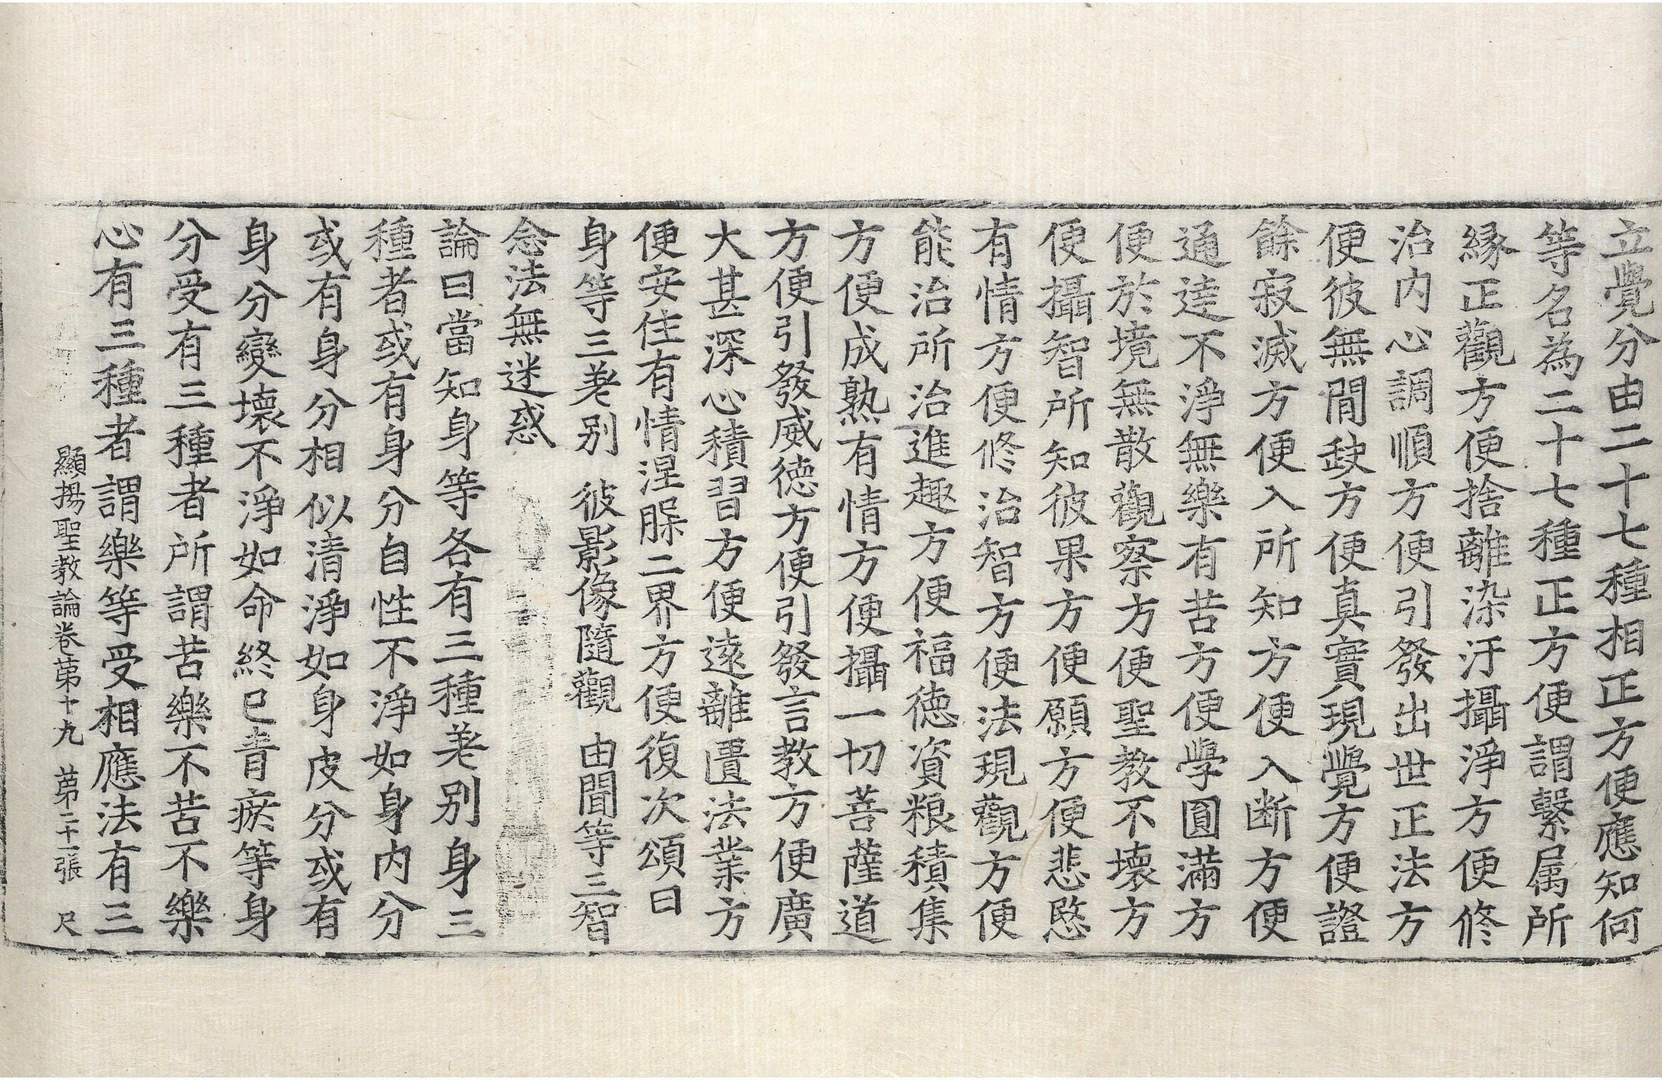 立覺分由二十七種相正方便應知何
等名為二十七種正方便謂繫属所
縁正觀方便捨離染汙攝淨方便修
治内心調順方便引發出世正法方
便彼無閒缺方便真實現覺方便證
餘寂滅方便入所知方便入断方便
通達不淨無樂有苦方便學圓滿方
便於境無散觀察方便聖教不壞方
便攝智所知彼果方便願方便悲愍
有情方便修治智方便法現觀方便
能治所治進趣方便福德資粮積集
方便成熟有情方便攝一切菩薩道
方便引發威德方便引發言教方便廣
大甚深心積習方便遠離匱法業方
便安住有情涅槃二界方便復次頌曰
身等三差别　彼影像隨觀　由聞等三智
念法無迷惑
論曰當知身等各有三種差别身三
種者或有身分自性不淨如身内分
或有身分相似清淨如身皮分或有
身分變壞不淨如命終已青瘀等身
分受有三種者所謂苦樂不苦不樂
心有三種者謂樂等受相應法有三
顯揚聖教論卷苐十九　苐二十一張　尺